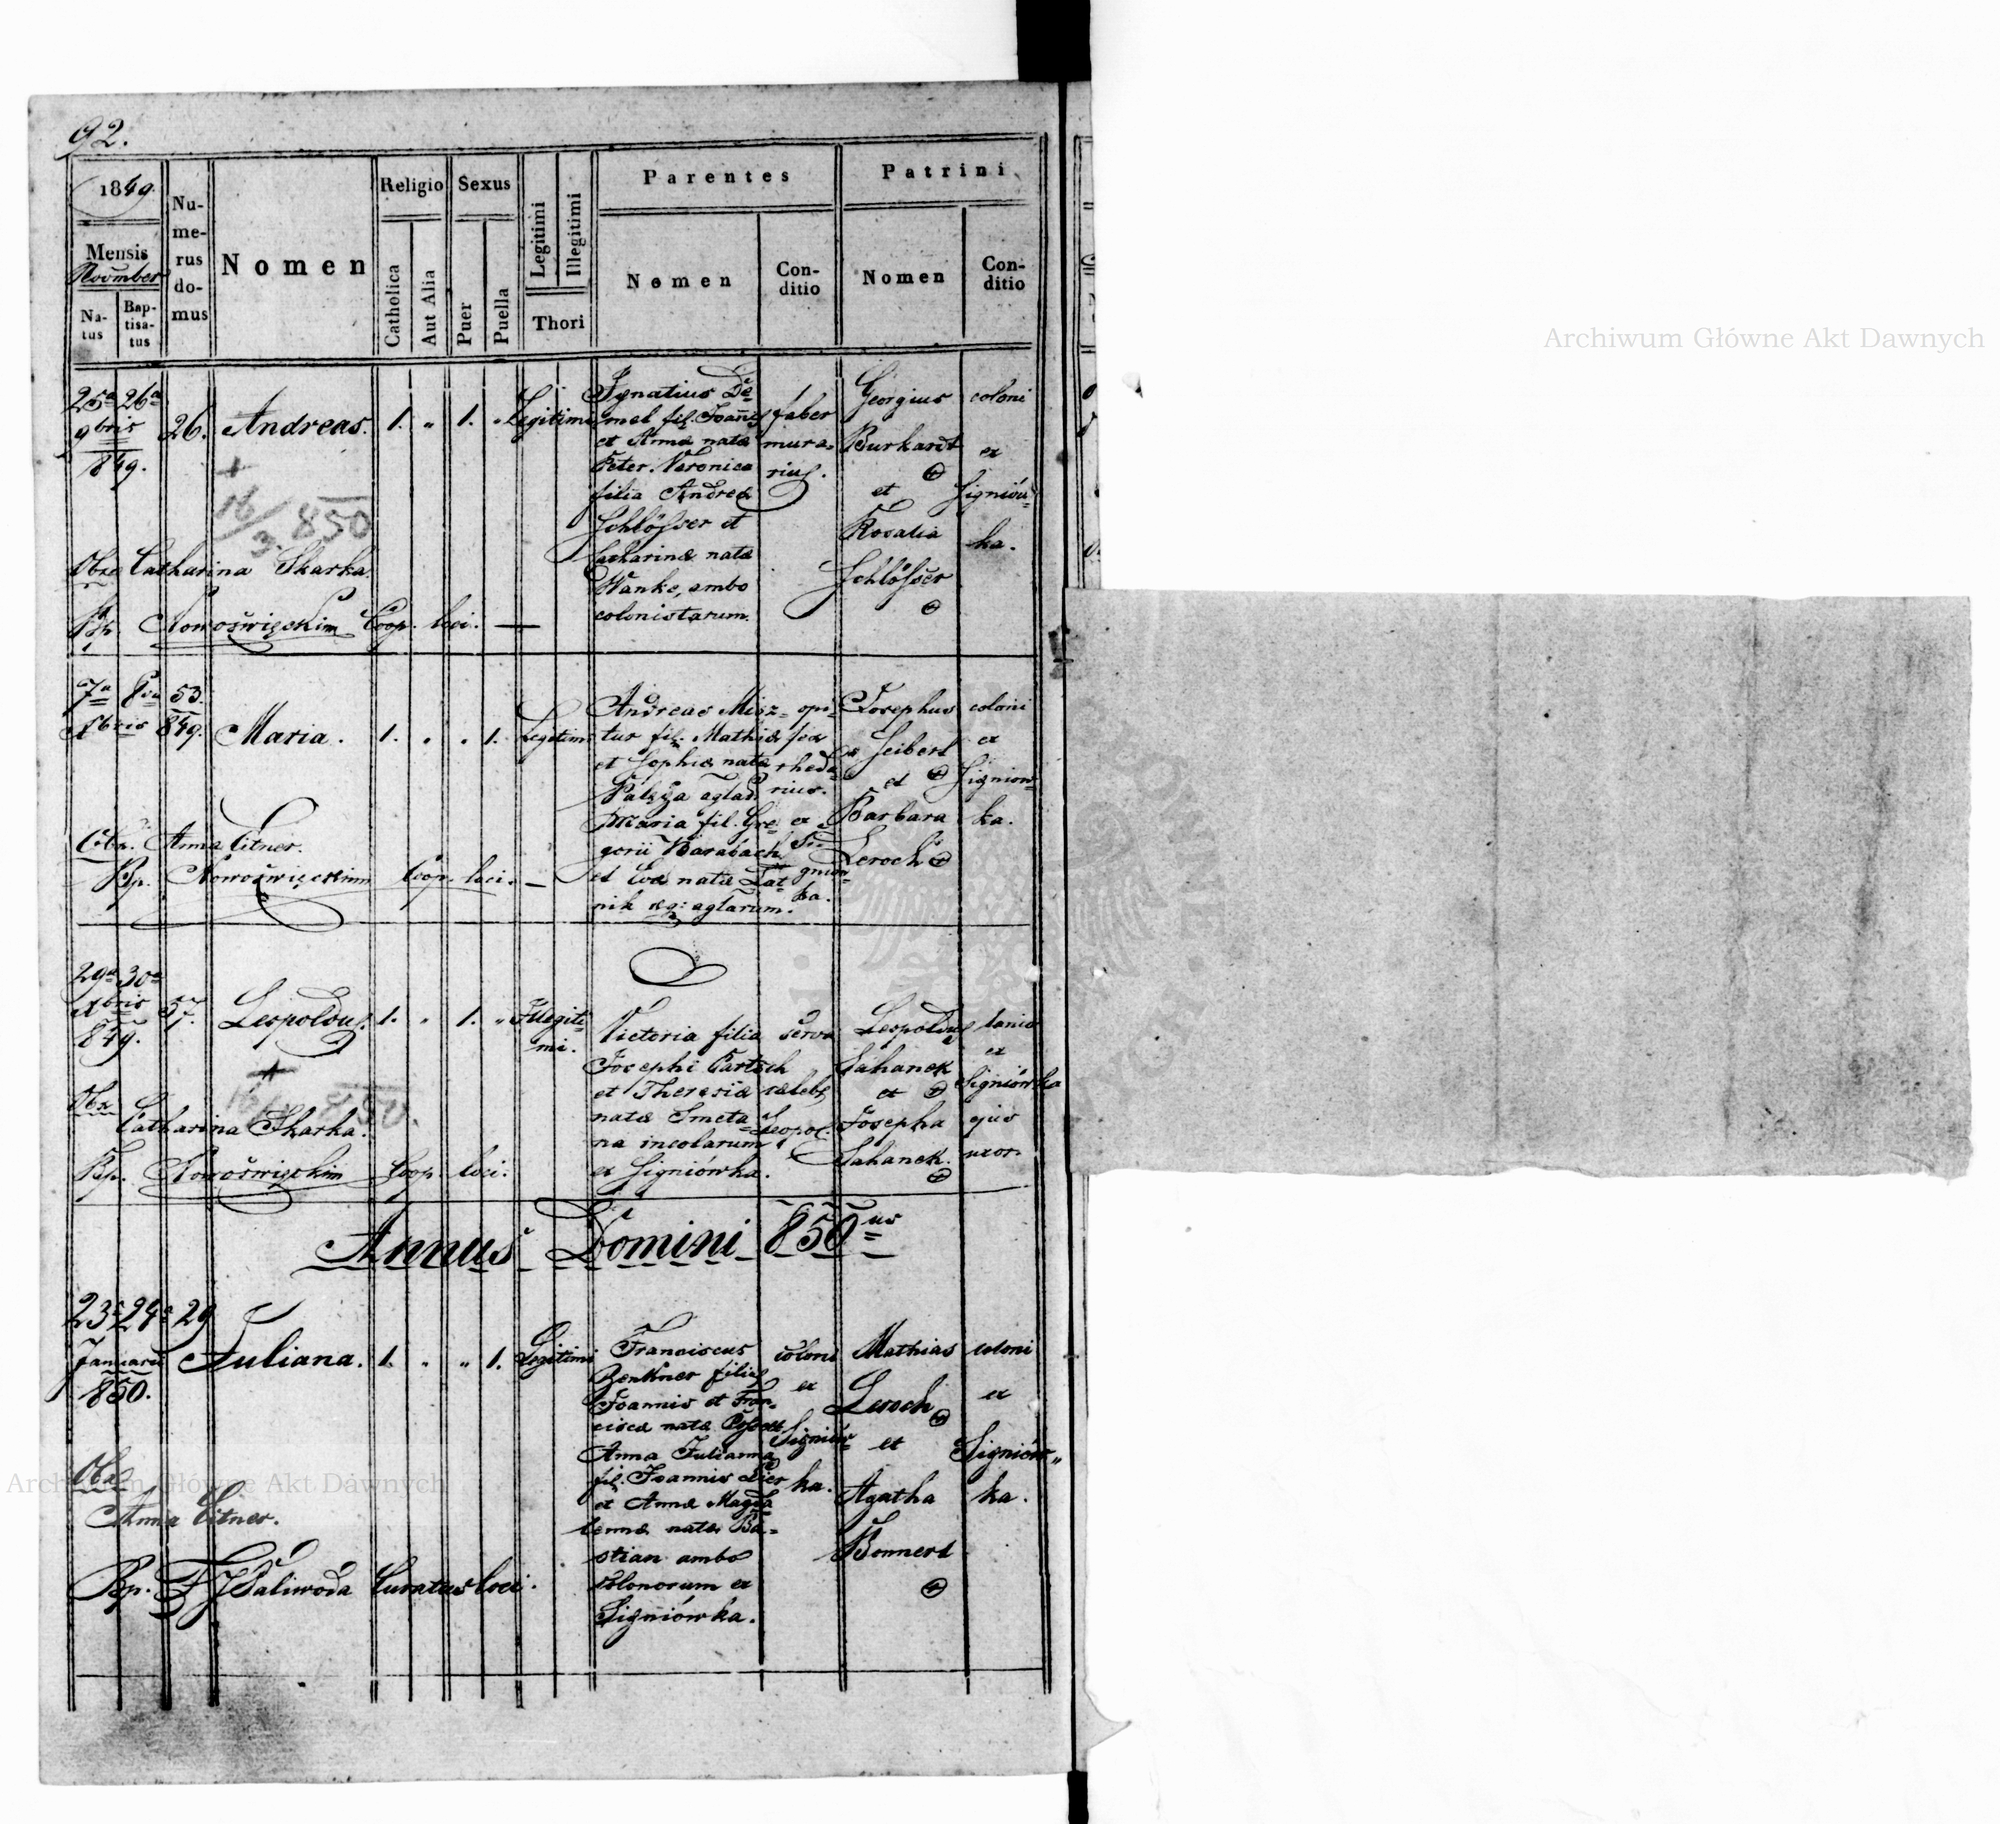 92.
1849.
Mensis
November
Na-
tus
Bap-
tisa-
tus
Nu-
me-
rus
do-
mus
Nomen
Religio
Catholica
Aut Alia
Sexus
Puer
Puella
Legitimi
Illegitimi
Thori
Parentes
Nomen
Con-
ditio
Patrini
Nomen
Con-
ditio
25a 26a
9bris
849.
26.
Andreas.
1. „ 1. „
Legitimi
Ignatius De-
mel fil. Joannis
et Anna nata
Peter. Veronica
filia Andrea
Schlösser et
Catharinæ nata
Wanke, ambo
colonistarum.
faber
mura-
rius.
Georgius
Burkardt
et
Rosalia
Schlösser
coloni
ex
Signiów-
ka.
+
16/3 850
Obx Catharina Skarka.
Bp. Nowoświęckim Coop. loci. —
7a 8va
Xbris
53.
849.
Maria.
1. „ „ 1.
Legitimi
Andreas Misz-
tur fil. Mathiæ
et Sophiæ nata
Maria fil. Gre-
gorii Barabach
et Evæ nata Lat-
nik agltarum.
opi-
fex
rheda-
rius.
ex
Si-
gniow-
ka.
Josephus
Seibert
et
Barbara
Leroch
coloni
ex
Signiow-
ka.
Obx. Anna Citner.
Bp. Nowoświęckim Coop. loci. —
29a 30a
Xbris
849.
57.
Leopoldus.
1. „ 1. „
Illegiti-
mi.
Victoria filia
Josephi Partsch
et Theresiæ
nata Smeta-
na incolarum
ex Signiówka.
serva
cælebs
Leopol.
Leopoldus
Sahanek
et
Josepha
Sahanek.
lanio
ex
Signiówka
ejus
uxor.
+
850.
Obx
Catharina Skarka.
Bp. Nowoświęckim Coop. loci.
Annus Domini 850us
23a 24a 29
Januarii
850.
Juliana.
1. „ „ 1.
Legitimi
Franciscus
Benkner filius
Joannis et Fran-
cisca nata
Anna Julianna
fil. Joannis
et Annæ Magda-
lennæ nata Ba-
stian ambo
colonorum ex
Signiówka.
coloni
ex
Signiów-
ka.
Mathias
Leroch
et
Agatha
Bonnert
coloni
ex
Signiów-
ka.
Obx
Anna Citner.
Bp. F J Paliwoda Curatus loci.
Archiwum Główne Akt Dawnych
Archiwum Główne Akt Dawnych